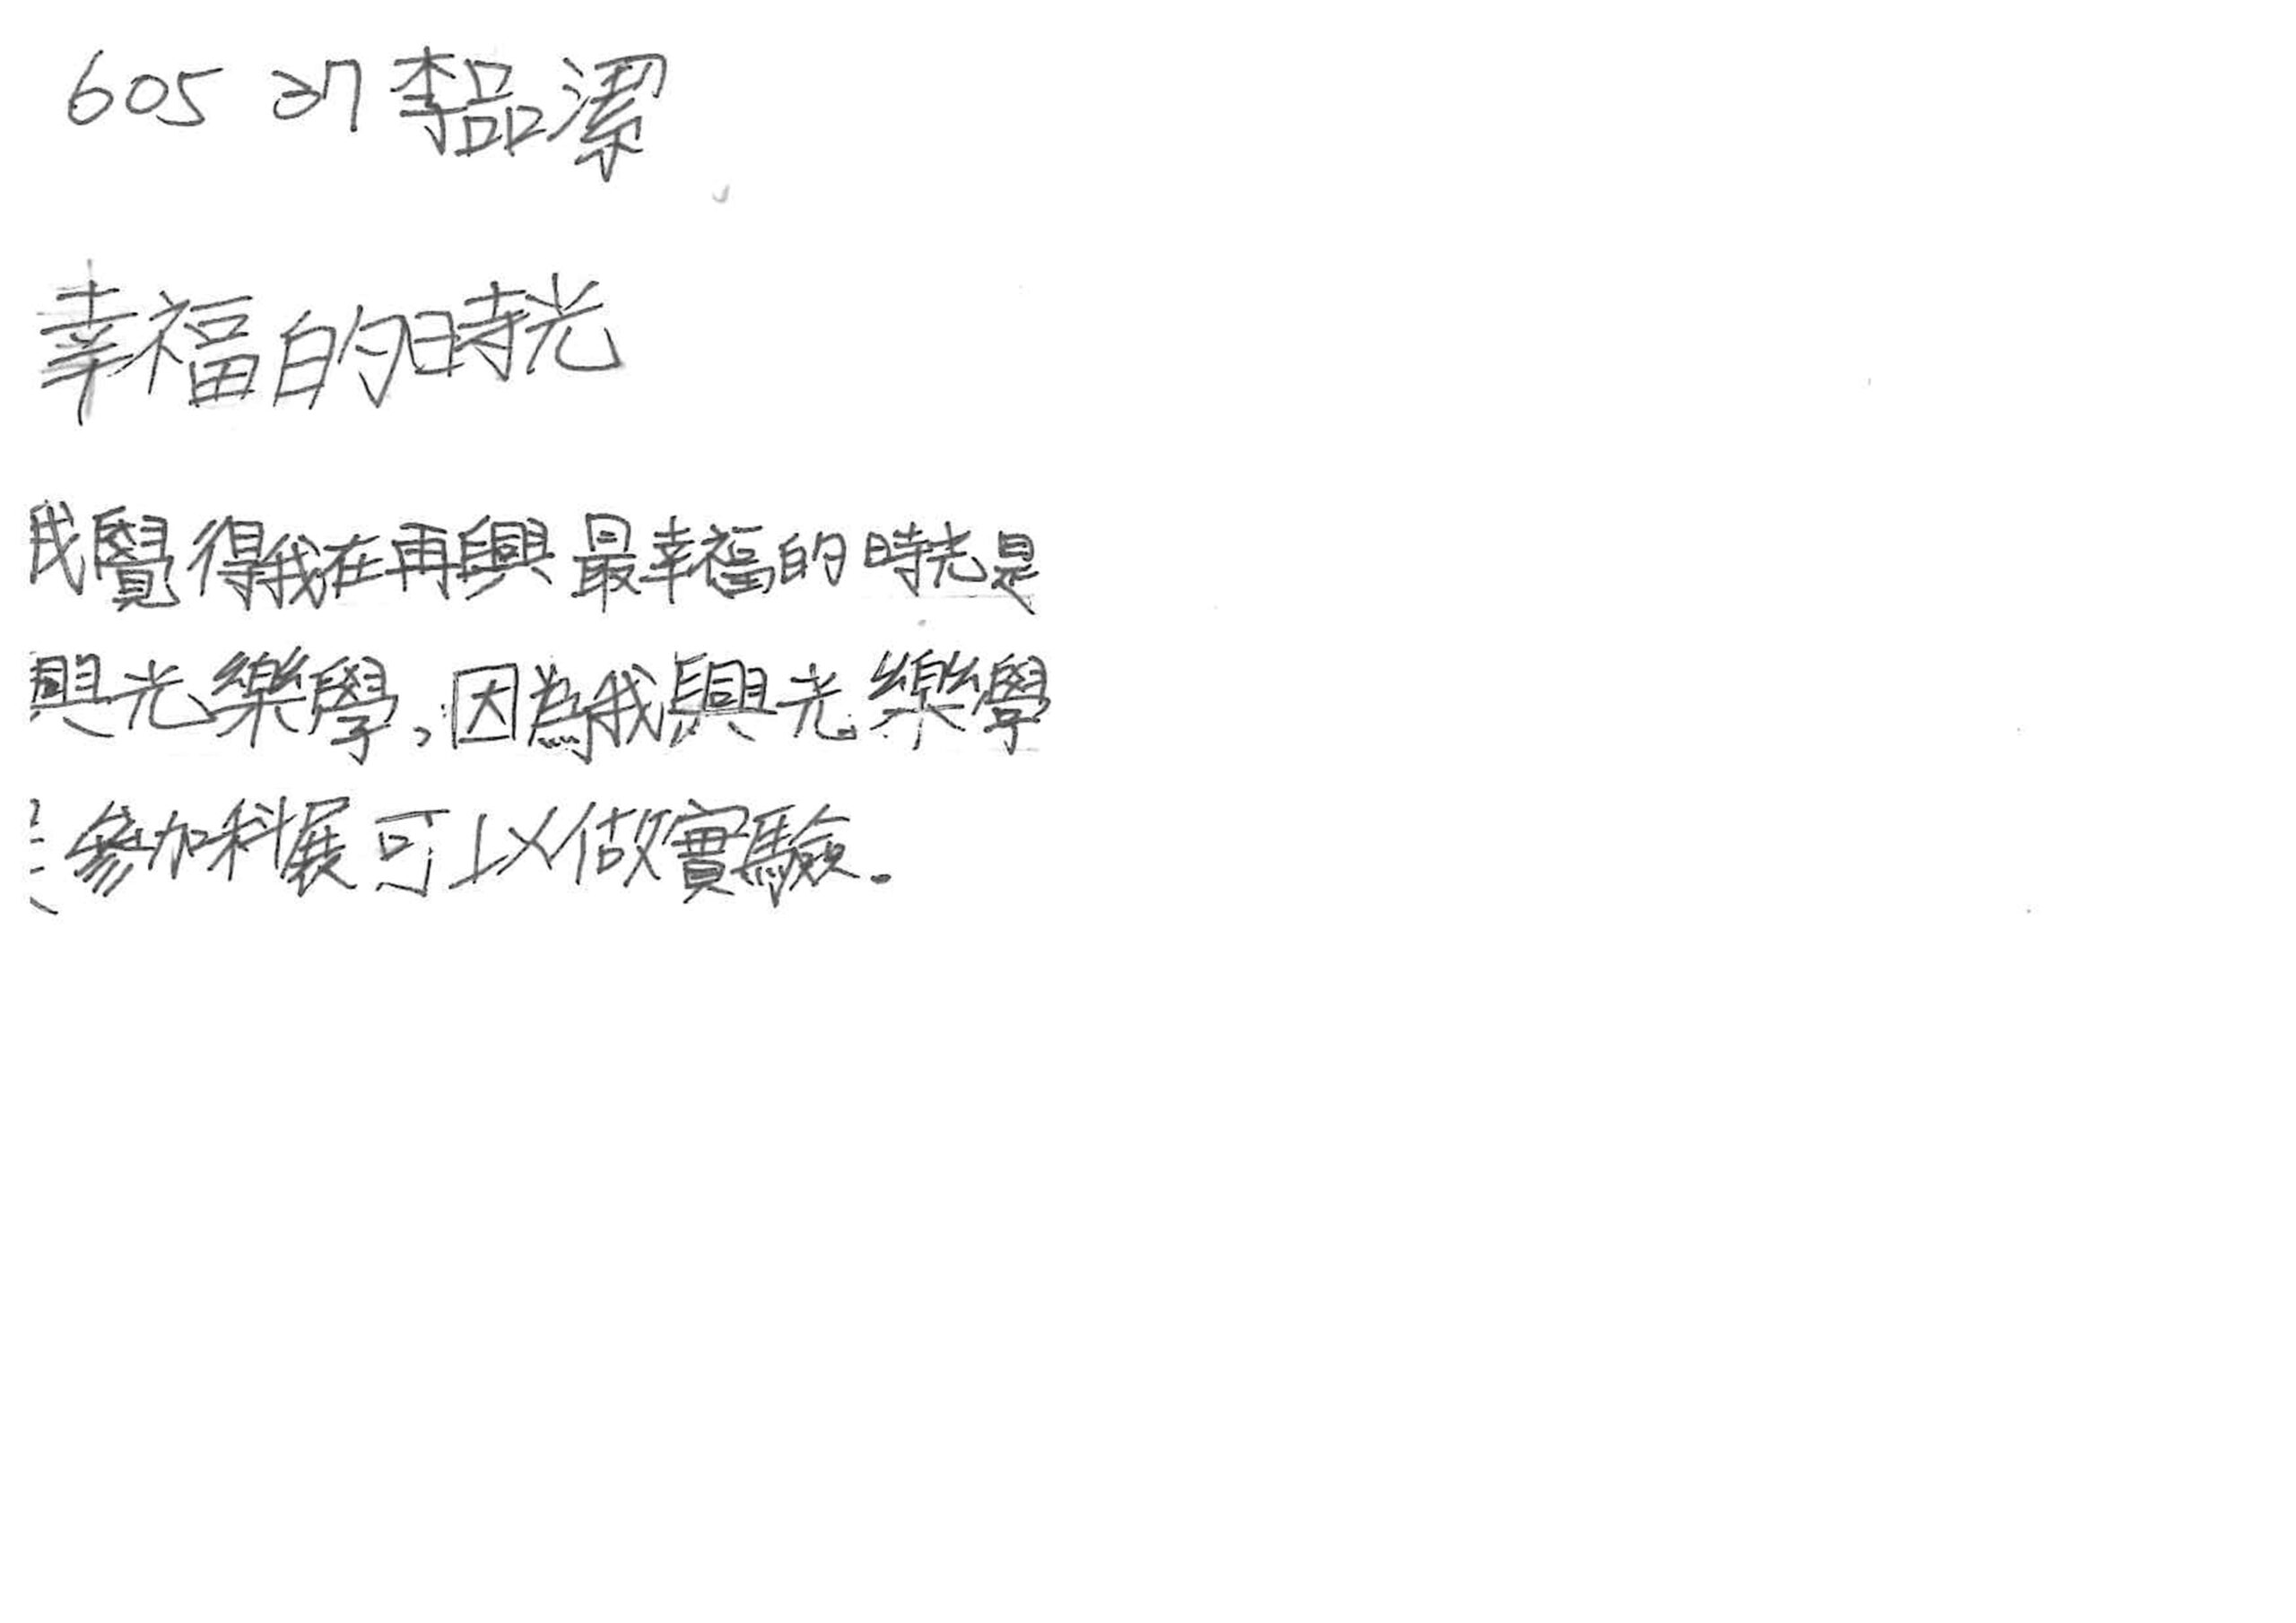 605 37 李品潔
幸福的時光
我覺得我在再興最幸福的時光是
興光樂學,因為我興光樂學
參加科展可以做實驗.